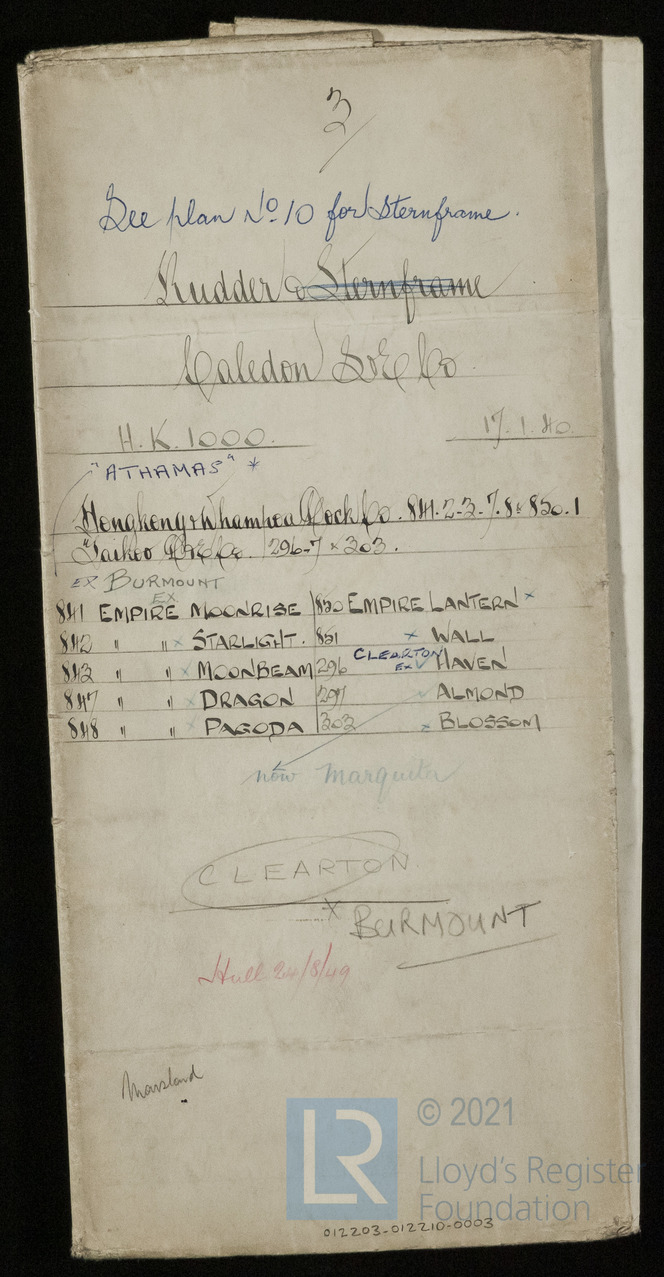 3
See plan No 10 for Sternframe.
Rudder & Sternframe
Caledon S & E Co
H.K. 1000. 17.1.40.
"ATHAMAS" *
Hongkong & Whampoa Dock Co. 841.2-3.7.8 & 850.1
Taikoo D & E Co. 296-7 & 303.
EX BURMOUNT
EX
841 EMPIRE MOONRISE 850 EMPIRE LANTERN x
842 " " x STARLIGHT. 851 x WALL
CLEARTON
843 " " x MOONBEAM 296 EX HAVEN
847 " " x DRAGON 297 ALMOND
848 " " x PAGODA 303 x BLOSSOM
now Marquiter
CLEARTON
x BURMOUNT
Hull 24/8/49
Marsland
LR
© 2021
Lloyd's Register
Foundation
012203-012210-0003